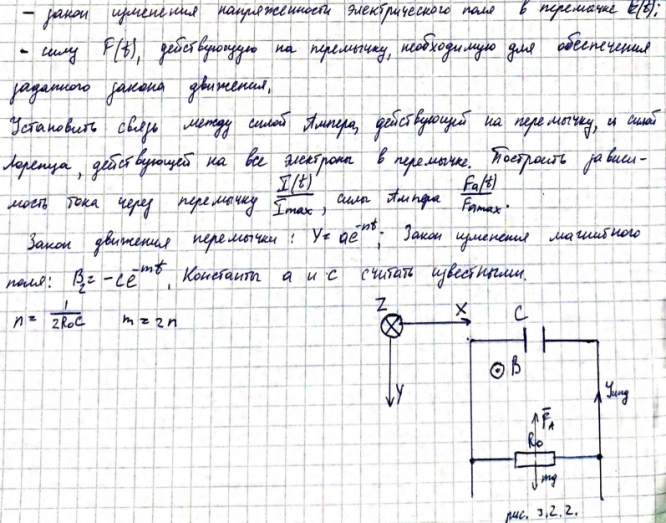 - закон изменения напряженности электрического поля в перемычке E(t);
- силу F(t), действующую на перемычку, необходимую для обеспечения
заданного закона движения.
Установить связь между силой Ампера, действующей на перемычку, и силой
Лоренца, действующей на все электроны в перемычке. Построить зависи-
мость тока через перемычку I(t)/Imax, силы Ампера Fa(t)/Famax.
Закон движения перемычки: Y=ae^-nt; Закон изменения магнитного
поля: Bz=-ce^-mt. Константы a и c считать известными.
n = 1/2R₀C m = 2n
Z X C
B
Y Yинд
F̄A
R₀
mg
рис. 3.2.2.